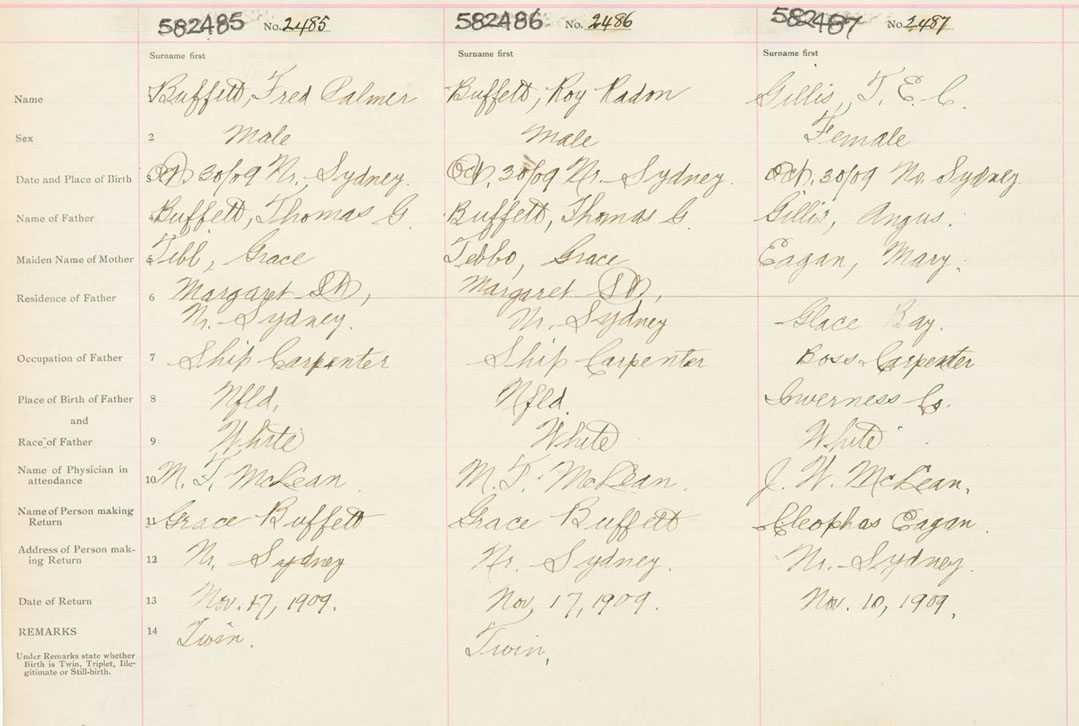 582485 No. 2485 582486 No. 2486 582487 No. 2487
Surname first Surname first Surname first
Name Buffett, Fred Palmer Buffett, Roy Radon Gillis, T. E. C.
Sex 2 Male Male Female
Date and Place of Birth 3 Oct. 30/09 Nr. Sydney. Oct. 30/09 Nr. Sydney. Oct. 30/09 No. Sydney
Name of Father 4 Buffett, Thomas G. Buffett, Thomas G. Gillis, Angus.
Maiden Name of Mother 5 Tibb, Grace Tebbo, Grace Eagan, Mary.
Residence of Father 6 Margaret St., Margaret St.,
Nr. Sydney. Nr. Sydney Glace Bay.
Occupation of Father 7 Ship Carpenter Ship Carpenter Boss Carpenter
Place of Birth of Father 8 Nfld. Nfld. Inverness Co.
and
Race of Father 9 White White White
Name of Physician in
attendance 10 M. T. McLean M. T. McLean. J. W. McLean.
Name of Person making
Return 11 Grace Buffett Grace Buffett Cleophas Eagan.
Address of Person mak-
ing Return 12 Nr. Sydney Nr. Sydney. Nr. Sydney.
Date of Return 13 Nov. 17, 1909. Nov. 17, 1909. Nov. 10, 1909.
REMARKS 14 Twin. Twin.
Under Remarks state whether
Birth is Twin, Triplet, Ille-
gitimate or Still-birth.